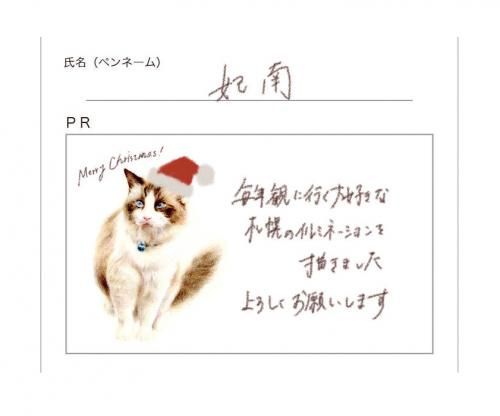 氏名（ペンネーム）
妃南
PR
Merry Christmas!
毎年観に行く大好きな
札幌のイルミネーションを
描きました
よろしくお願いします